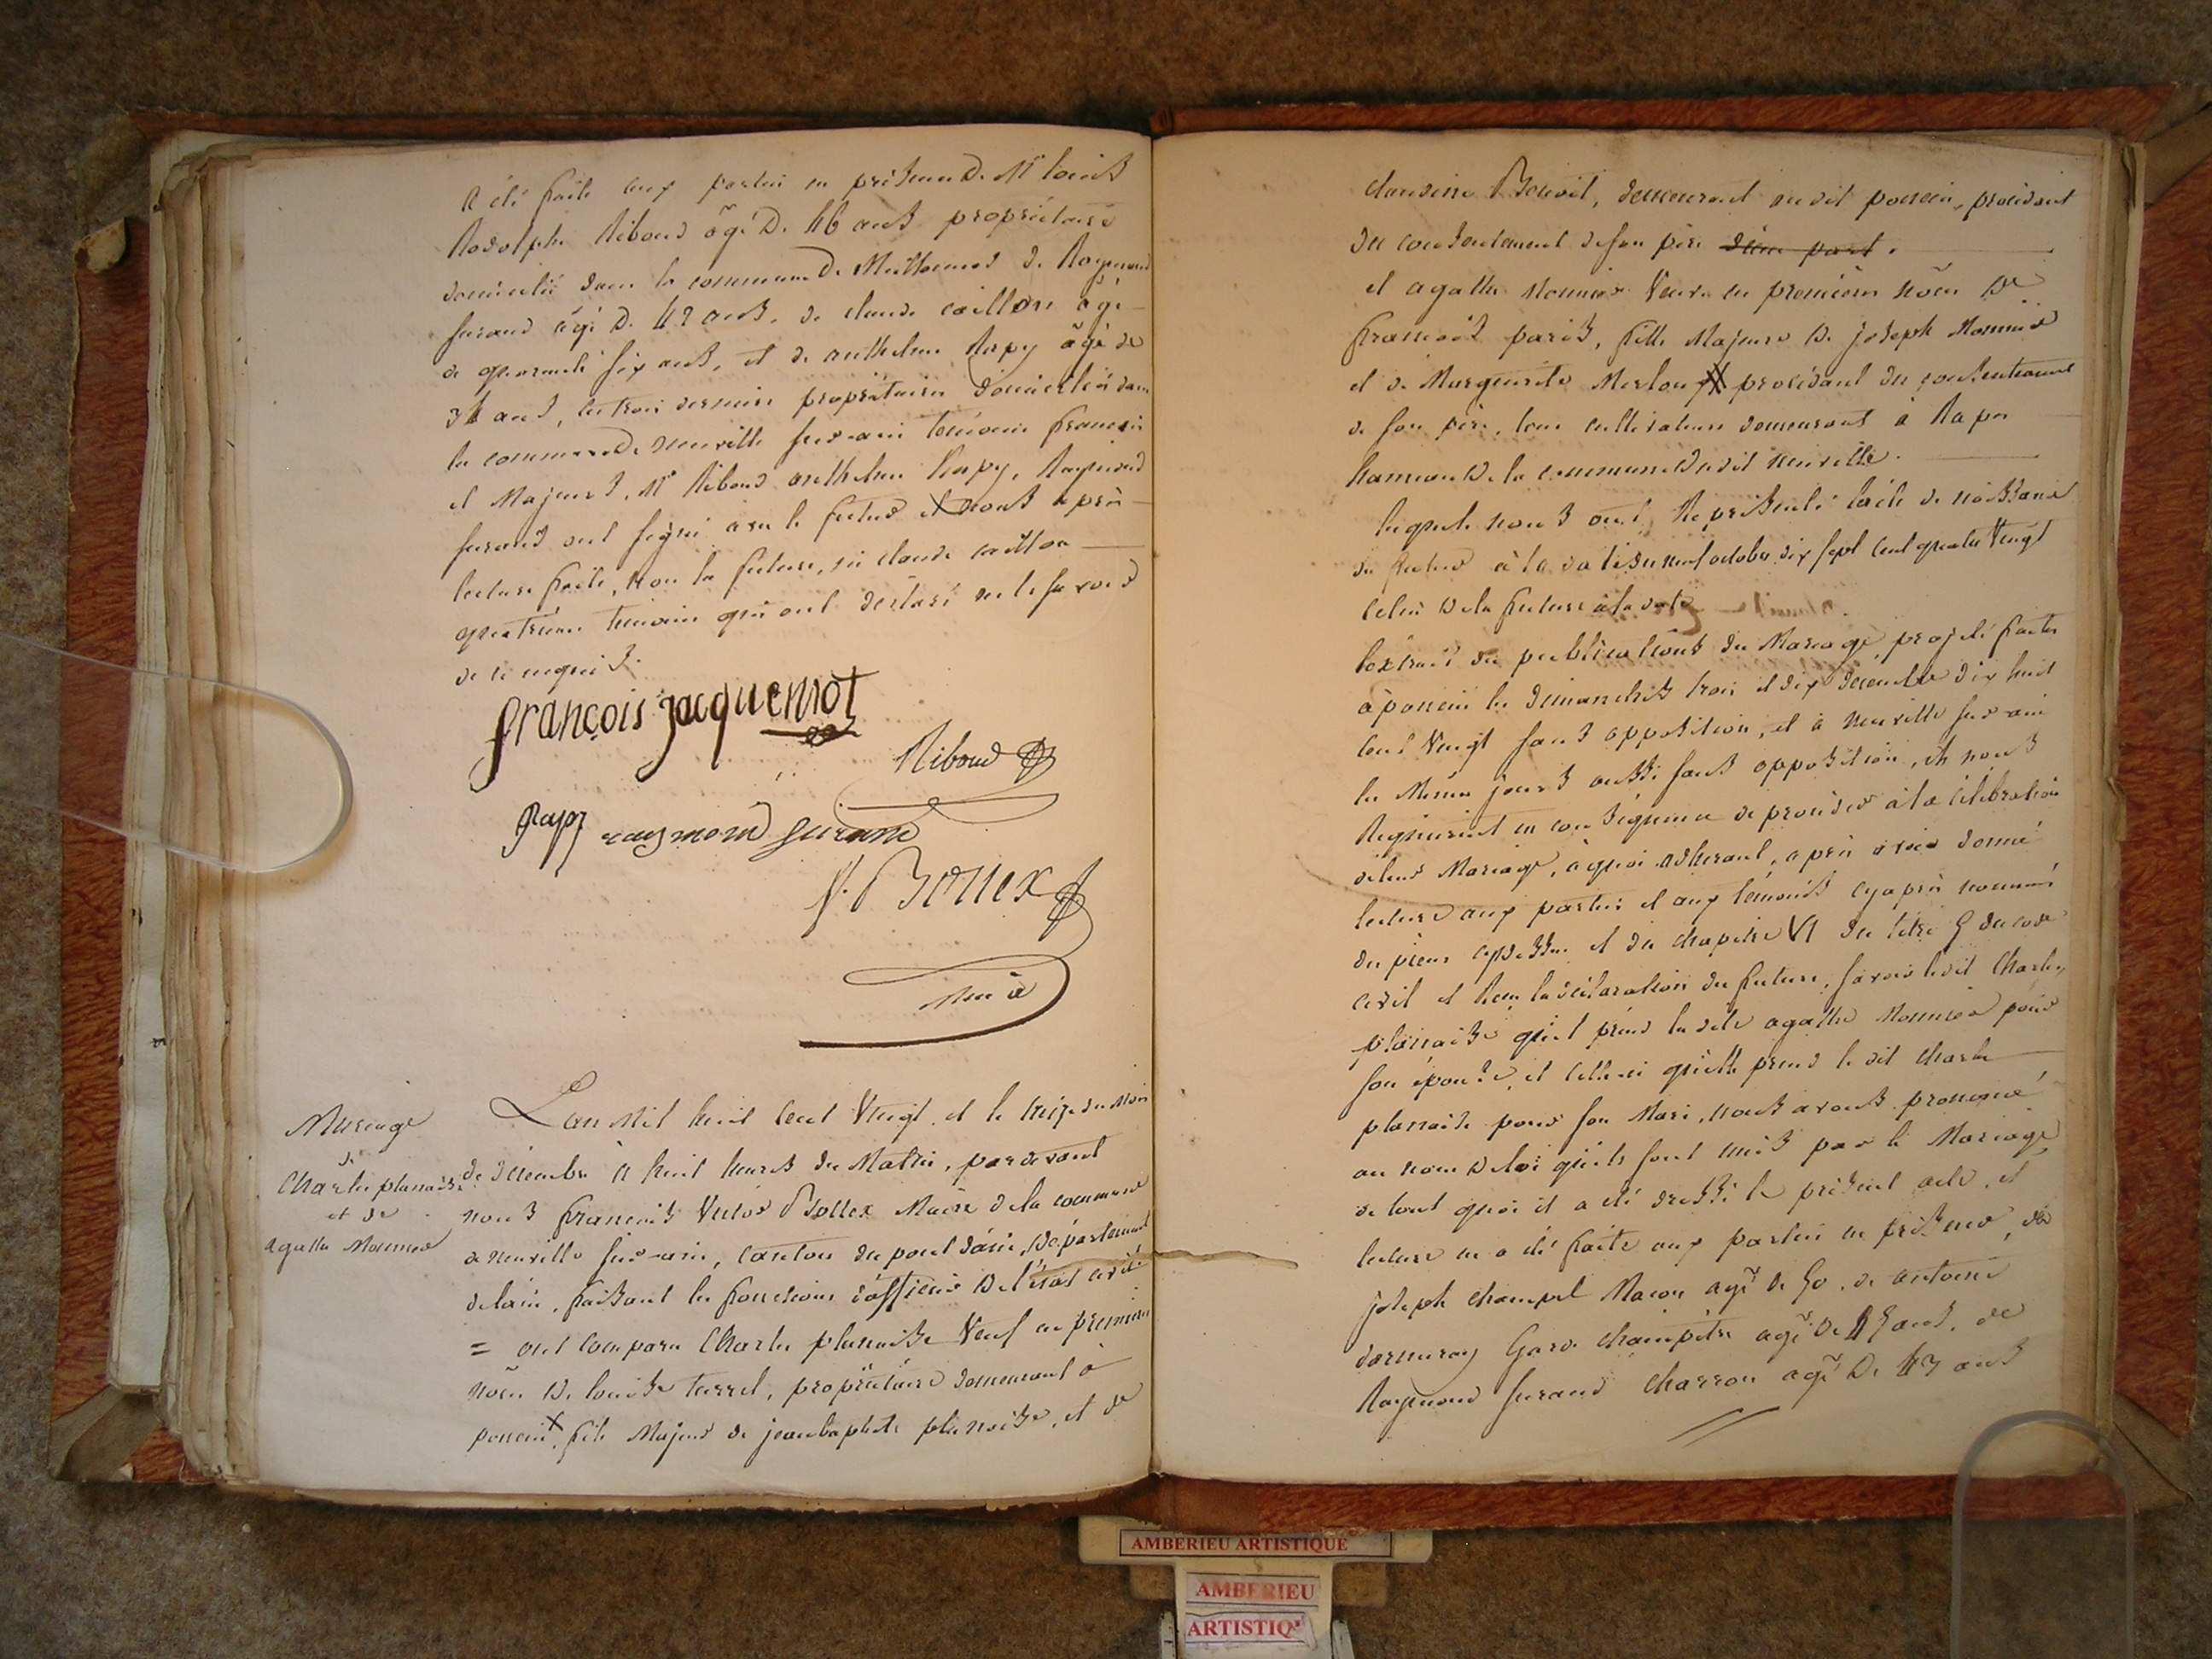 a été faite aux parties en présence De Mr louis
Rodolphe Riboud âgé De 46 ans propriétaire
domicilié dans la commune De De Raymond
furand âgé De 42 ans, de claude caillon âgé
de quarante six ans, et de anthelme Rapy âgé de
ans, les trois derniers propriétaires domiciliés dans
la commune De neuville sur-ain témoins francais
et Majeurs, Mr Riboud anthelme Rapy, Raymond
furand ont signé avec le futur et nous après
lecture faite, non la future, ni claude caillon
quatrième témoin qui ont déclaré ne le savoir
de ce enquis.
françois jacquemot
Riboud
Rapy raymond furand
Bollex
Maire
Mariage
de
Charles planaise
et de
agathe Monnier
L'an Mil huit cent Vingt, et le treize du Mois
de décembre à huit heures du Matin, pardevant
nous francois Victor Bollex Maire de la commune
de neuville sur-ain, canton du pont d'ain, Département
de lain, faisant les fonctions d'officier De l'état civil
= ont comparu Charles planaise Veuf en premiers
nôces De louise terrel, propriétaire demeurant à
poncin, fils Majeur de jeanbaptiste planaise, et de
claudine Bouvet, demeurant audit poncin, procédant
du consentement de son père d'une part.
et agathe Monnier Veuve en premières nôces De
francois paris, fille Majeure De joseph Monnier
et de Marguerite Merloz procédant du consentement
de son père, tous cultivateurs demeurant à
hameau De la commune Dudit neuville.
lesquels nous ont Représenté l'acte de naissance
du futur à la date du neuf octobre dix sept cent quatre Vingt
celui De la future à la date
l'extrait des publications du Mariage projeté faites
à poncin les dimanches trois et dix décembre dix huit
cent Vingt sans opposition, et à neuville sur-ain
les Mêmes jours aussi sans opposition, et nous
Requièrent en conséquence de procéder à la célébration
de leur Mariage, à quoi adhérant, après avoir donné
lecture aux parties et aux témoins cyaprès nommés
des pièces cydessus et du chapitre VI du titre 5 du code
civil et Reçu la déclaration des futurs, savoir ledit Charles
planaise qu'il prend la dite agathe Monnier pour
son épouse, et celle-ci qu'elle prend le dit Charles
planaise pour son Mari, nous avons prononcé
au nom De la loi qu'ils sont unis par le Mariage,
de tout quoi il a été dressé le présent acte, et
lecture en a été faite aux parties en présence, de
joseph champel Macon agé de 50. de antoine
dormuray Garde champêtre agé De ans, de
Raymond furand charron agé De 43 ans
AMBERIEU ARTISTIQUE
AMBERIEU
ARTISTIQ